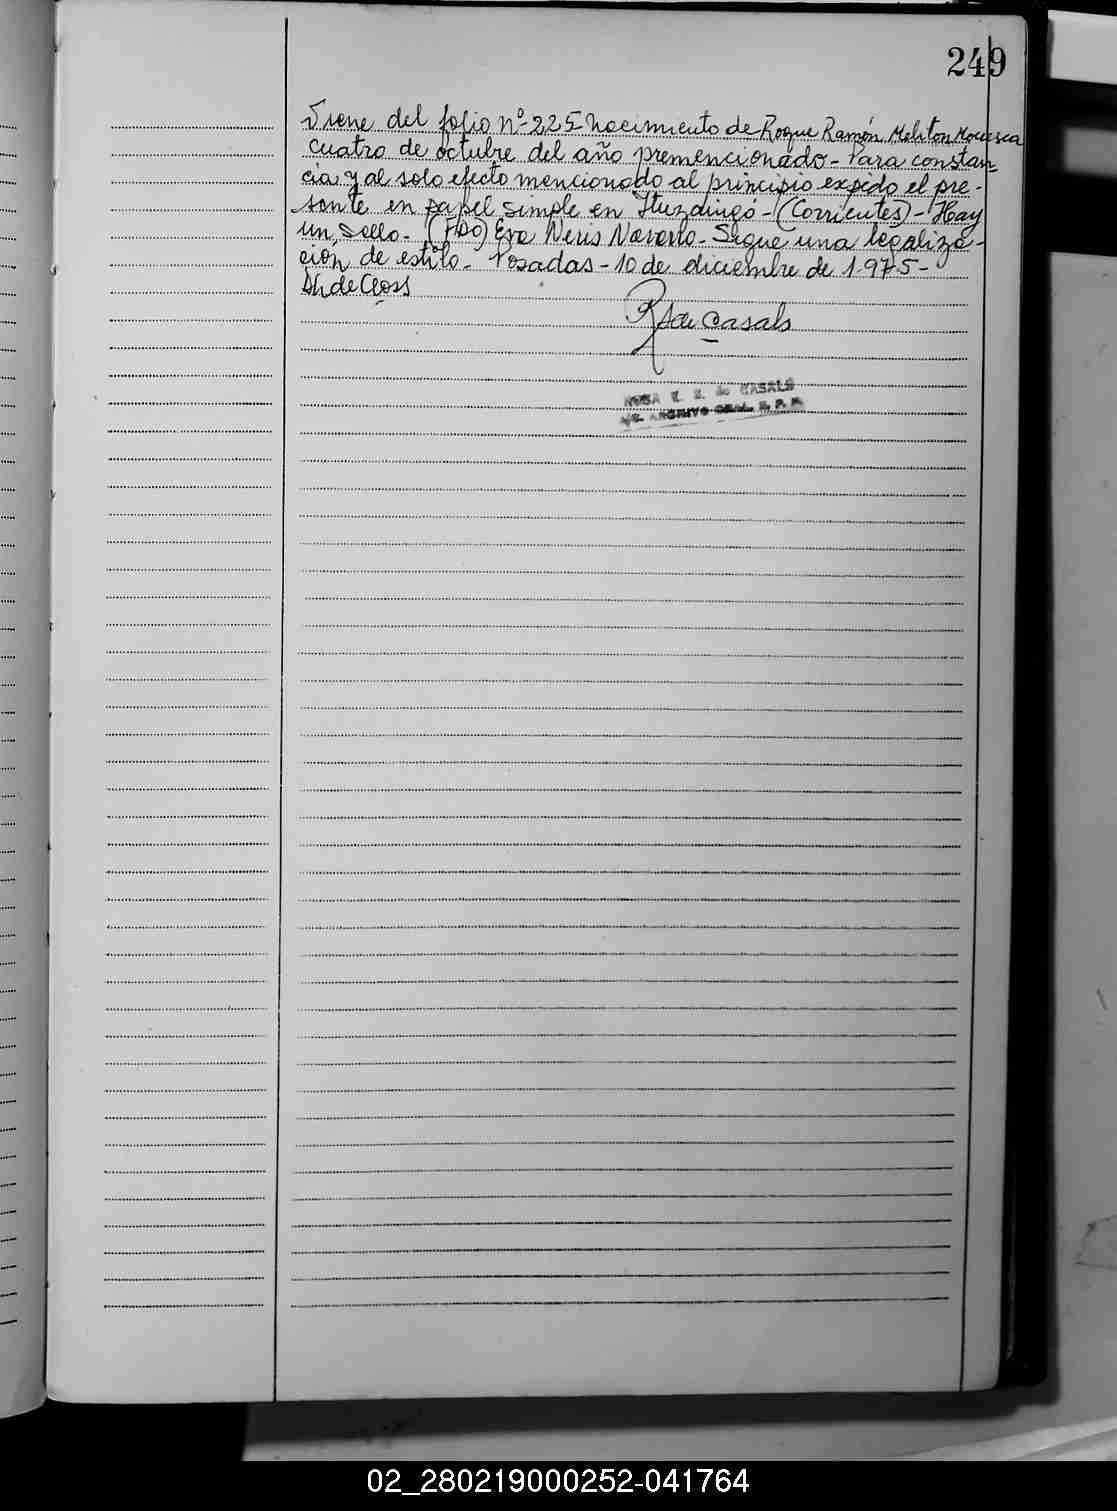 249
Viene del folio Nº 225 Nacimiento de Roque Ramón Meliton
cuatro de octubre del año premencionado - Para constan
cia y al solo efecto mencionado al principio expido el pre-
sente en papel simple en Ituzaingó - (Corrientes) - Hay
un sello - (FDO) Eva Neris Navarro - Sigue una legaliza-
ción de estilo - Posadas - 10 de diciembre de 1.975 -
de Closs
de Casals
ROSA de CASALS
ARCHIVO GRAL. R. P. P.
02_280219000252-041764